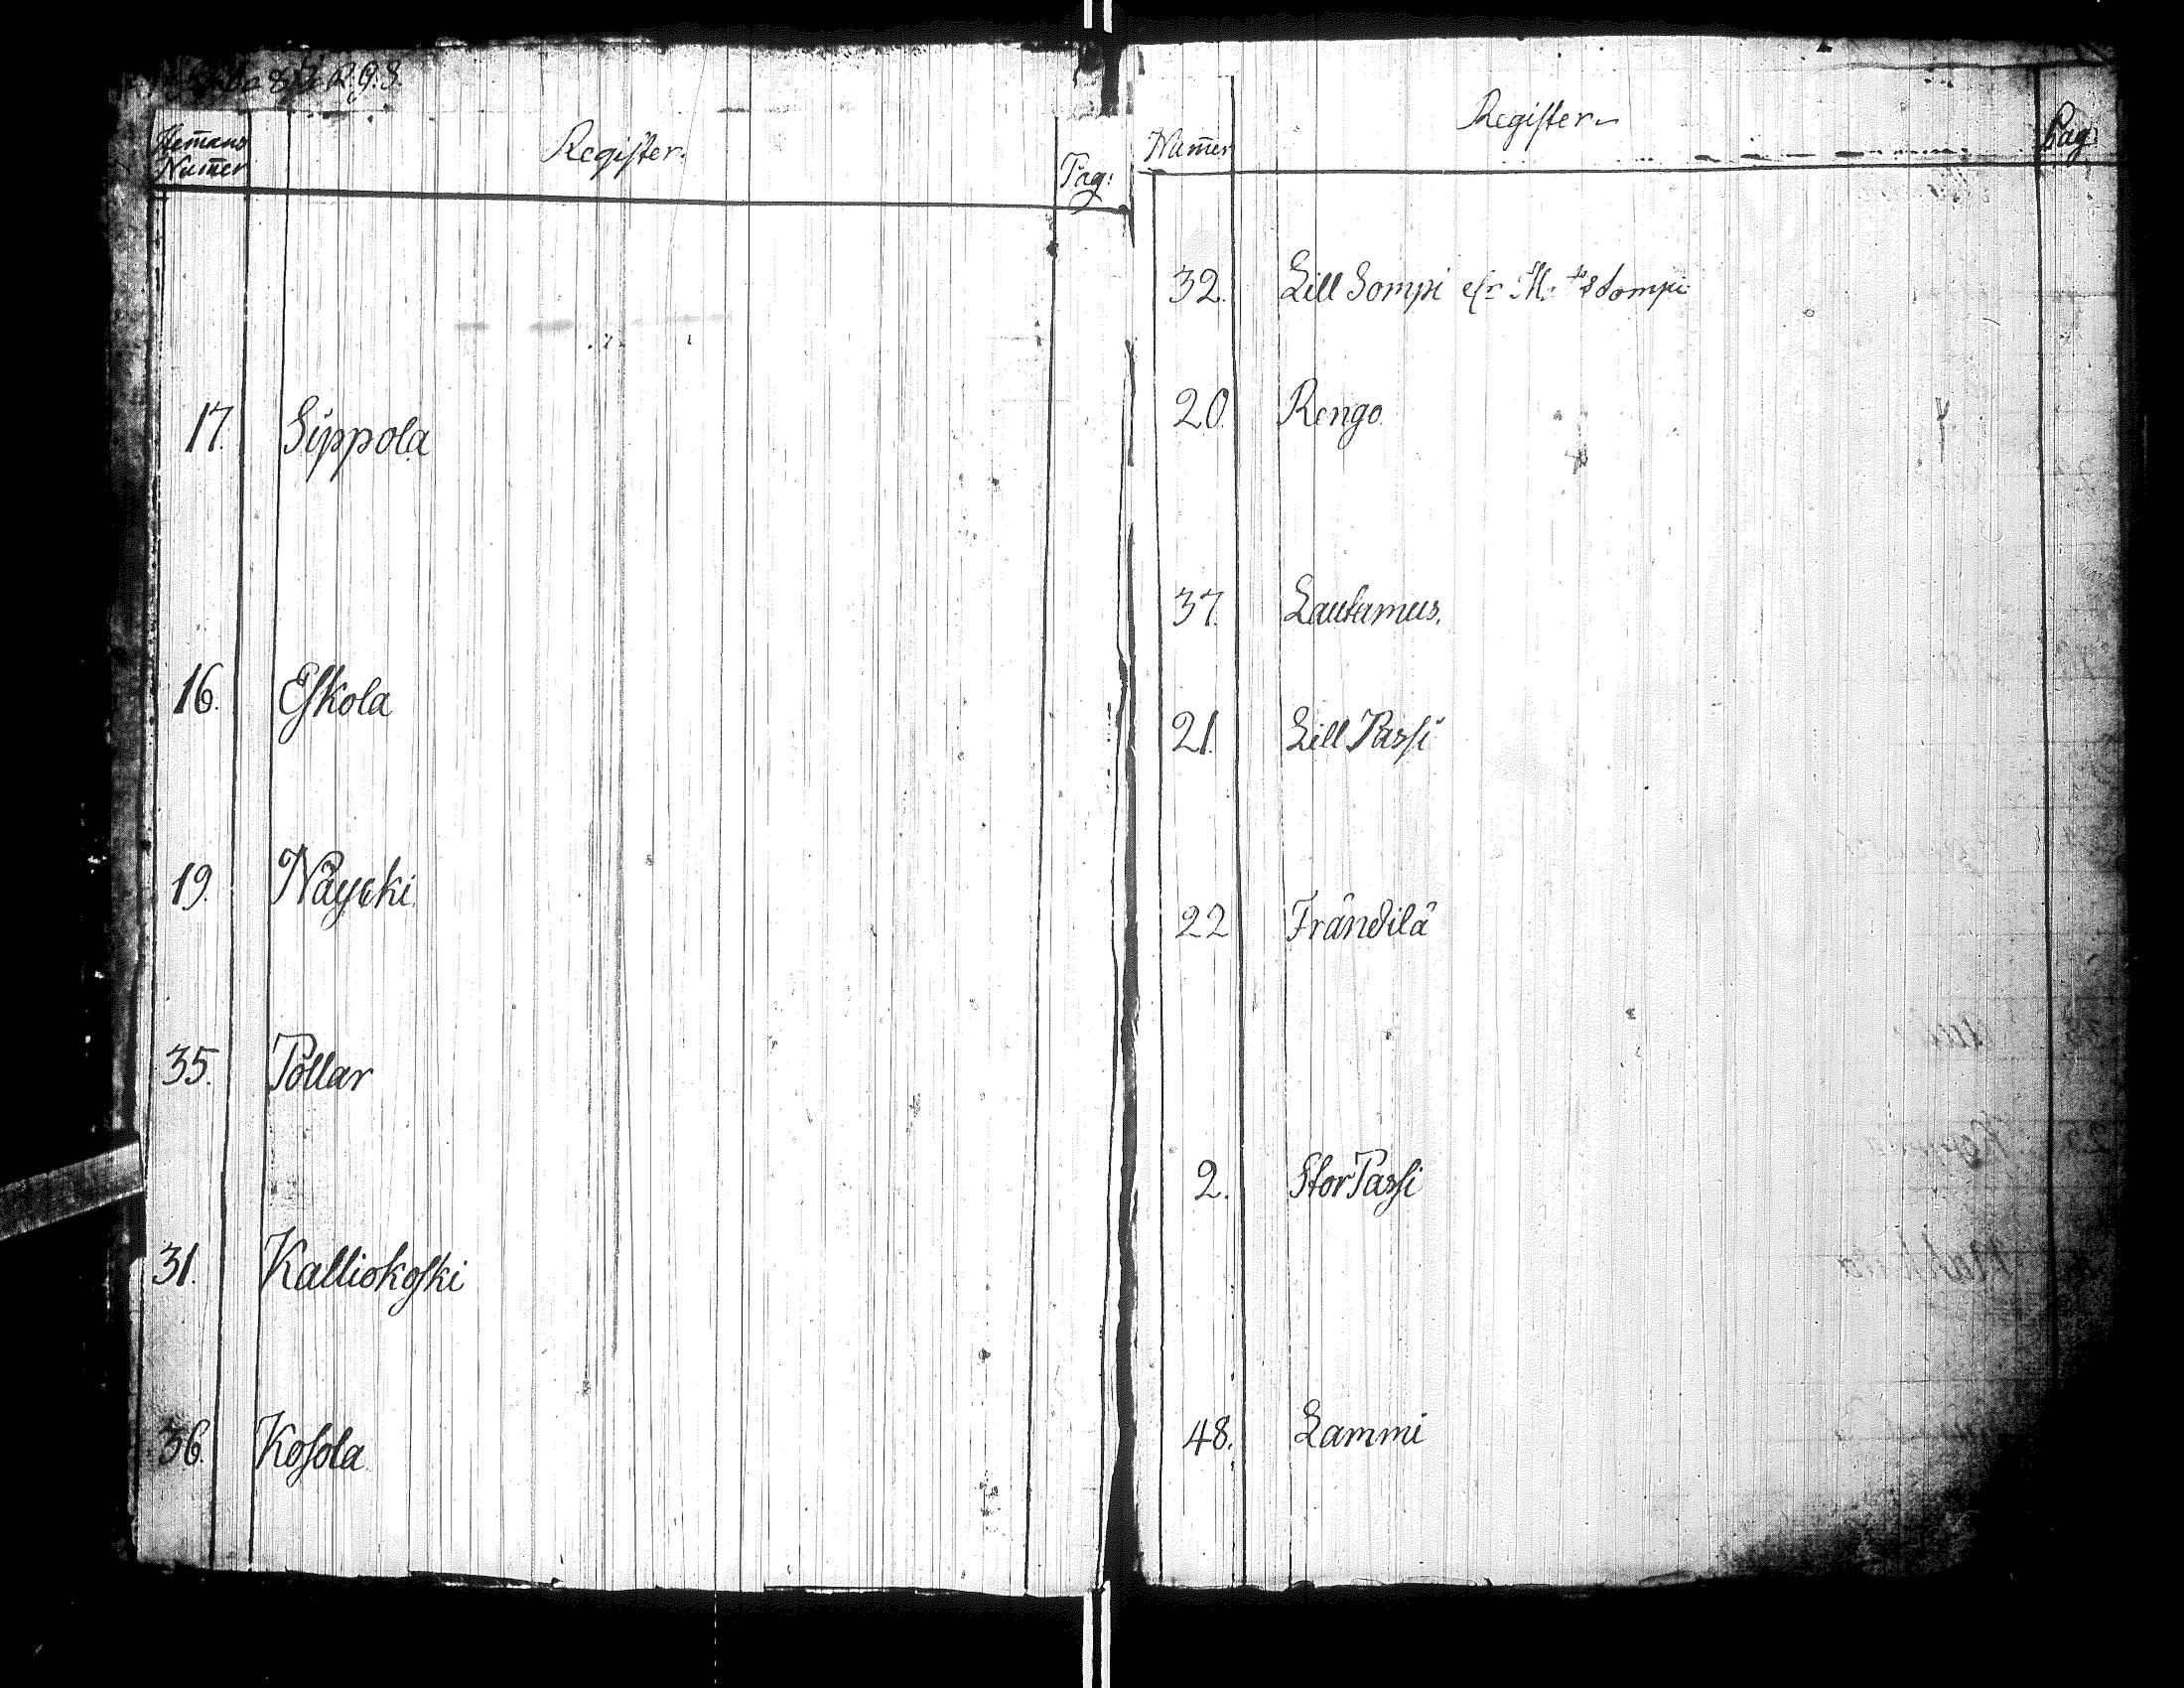 Hem̄ans
Num̄er
Register.
Pag:
17. Sippola
16. Eskola
19. Näycki
35. Pöllar
31. Kalliokoski
36. Kosola
Num̄er
Register
Pag:
32. Lill Sompi
20. Rengo
37. Lautamus.
21. Lill Passi
22 Frändilä
2. Stor Passi
48. Lammi